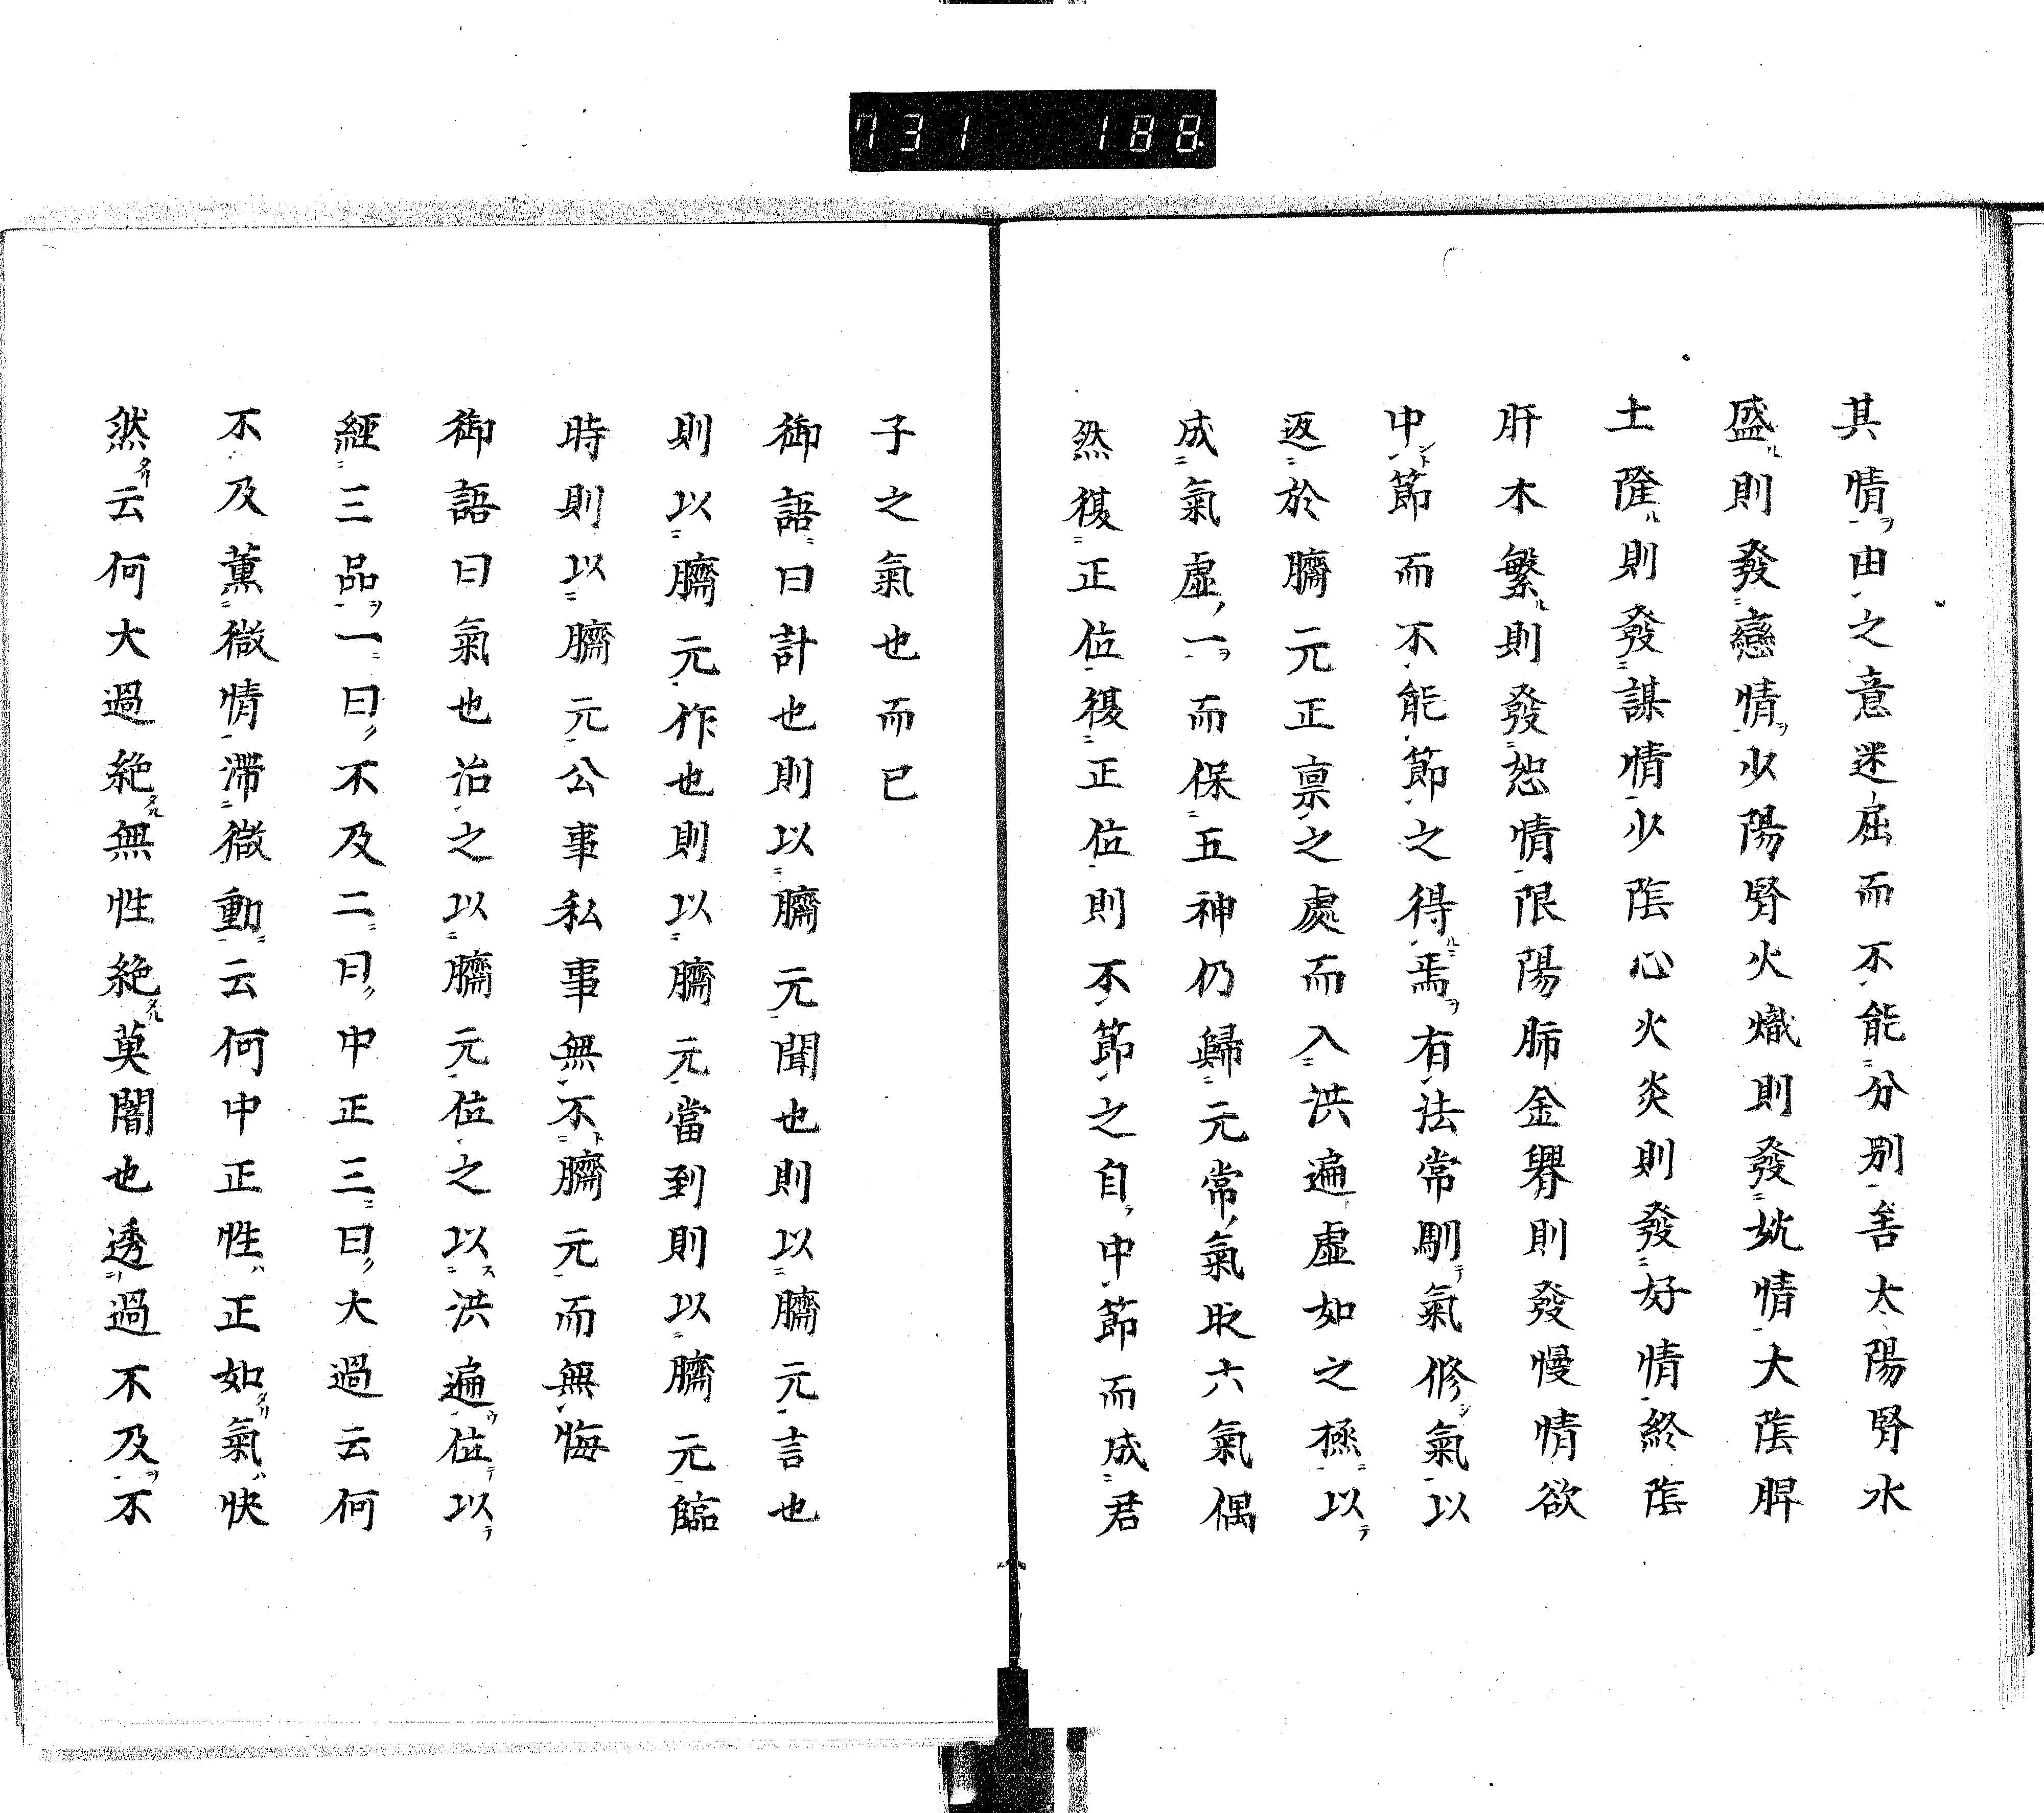 731 188
其情ヲ由之意迷屈而不能分別善太陽腎水
盛ル則發戀情ヲ少陽腎火熾則發妬情大陰脾
土隆ル則發謀情少陰心火炎則發好情終陰
肝木繁ル則發恕情限陽肺金舉則發慢情欲
中ント節而不能節之得ルニ焉ヲ有法常馴テ氣修シ氣以
返於臍元正禀之處而入洪遍虛如之極以テ
成氣虛ノ一ヲ而保五神仍歸元常ノ氣政六氣偶
然復正位復正位則不節之自ラ中節而成君
子之氣也而已
御語曰計也則以臍元聞也則以臍元言也
則以臍元作也則以臍元當到則以臍元臨
時則以臍元公事私事無不ト臍元而無悔
御語曰氣也治之以臍元位之以ス洪遍ウ位テ以テ
經三品ヲ一曰ク不及二曰ク中正三曰ク大過云何
不及薫微情滯微動云何中正性ハ正如タリ氣ハ快
然タリ云何大過絶タル無性絶タル莫闇也透過不及ヲ不